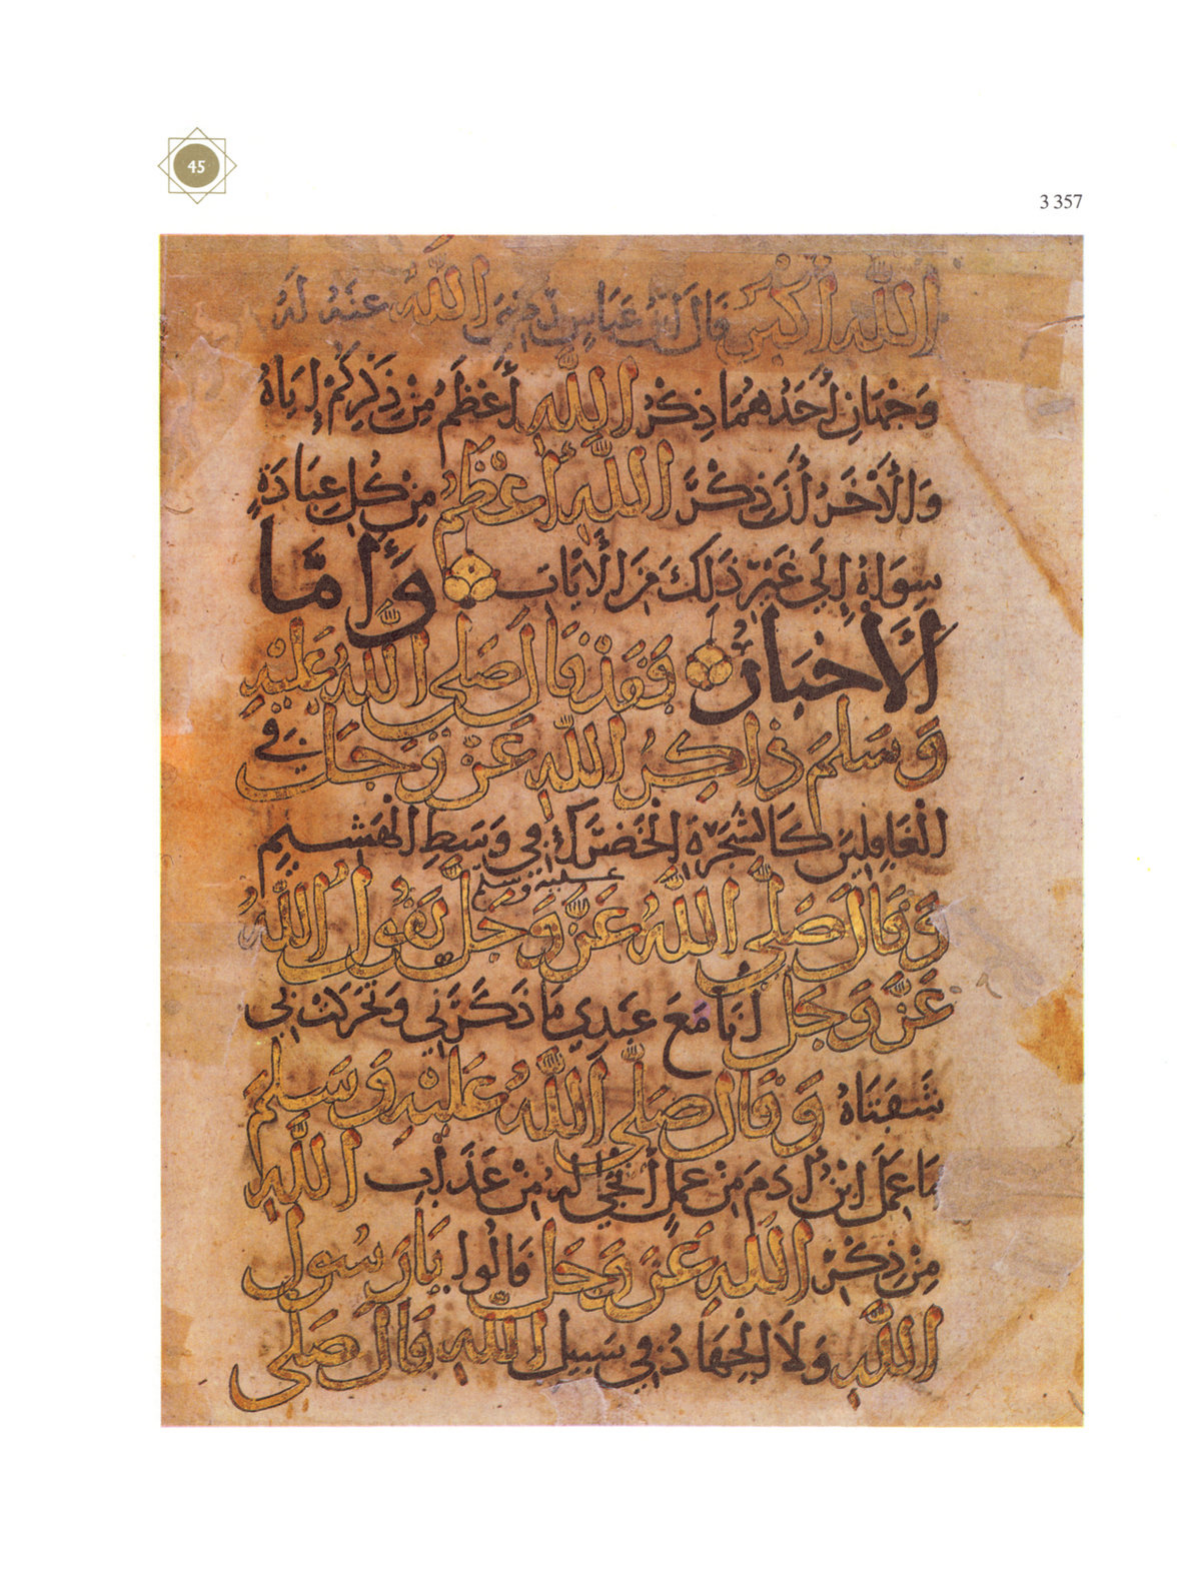 45
3 357
الله أكبر قال ابن عباس رضي الله عنه له
وَجْهَانِ أَحَدُهُمَا ذِكْرُ اللَّهِ أَعْظَمُ مِنْ ذِكْرِكُمْ إِيَاهُ
وَالْأَخَرُ أَنَّ ذِكْرَ اللَّهِ أَعْظَمُ مِنْ كُلِّ عِبَادَةٍ
سِوَاهُ إِلَى غَيْرِ ذَلِكَ مِنَ الْأَيَاتِ وَأَمَّا
الْأَخْبَارُ فَقَدْ قَالَ صَلَّى اللَّهُ عَلَيْهِ
وَسَلَّمَ ذَاكِرُ اللَّهِ عَزَّ وَجَلَّ فِي
الْغَافِلِينَ كَالشَّجَرَةِ الْخَضْرَاءِ فِي وَسَطِ الْهَشِيمِ
عليه وسلم
وَقَالَ صَلَّى اللَّهُ عَزَّ وَجَلَّ يَقُولُ اللَّهُ
عَزَّ وَجَلَّ أَنَا مَعَ عَبْدِي مَا ذَكَرَنِي وَتَحَرَّكَتْ بِي
شَفَتَاهُ وَقَالَ صَلَّى اللَّهُ عَلَيْهِ وَسَلَّمَ
مَا عَمِلَ ابْنُ أَدَمَ مِنْ عَمَلٍ أَنْجَى لَهُ مِنْ عَذَابِ اللَّهِ
مِنْ ذِكْرِ اللَّهِ عَزَّ وَجَلَّ قَالُوا يَارَسُولَ
اللَّهِ وَلَا الْجِهَادُ فِي سَبِيلِ اللَّهِ قَالَ صَلَّى